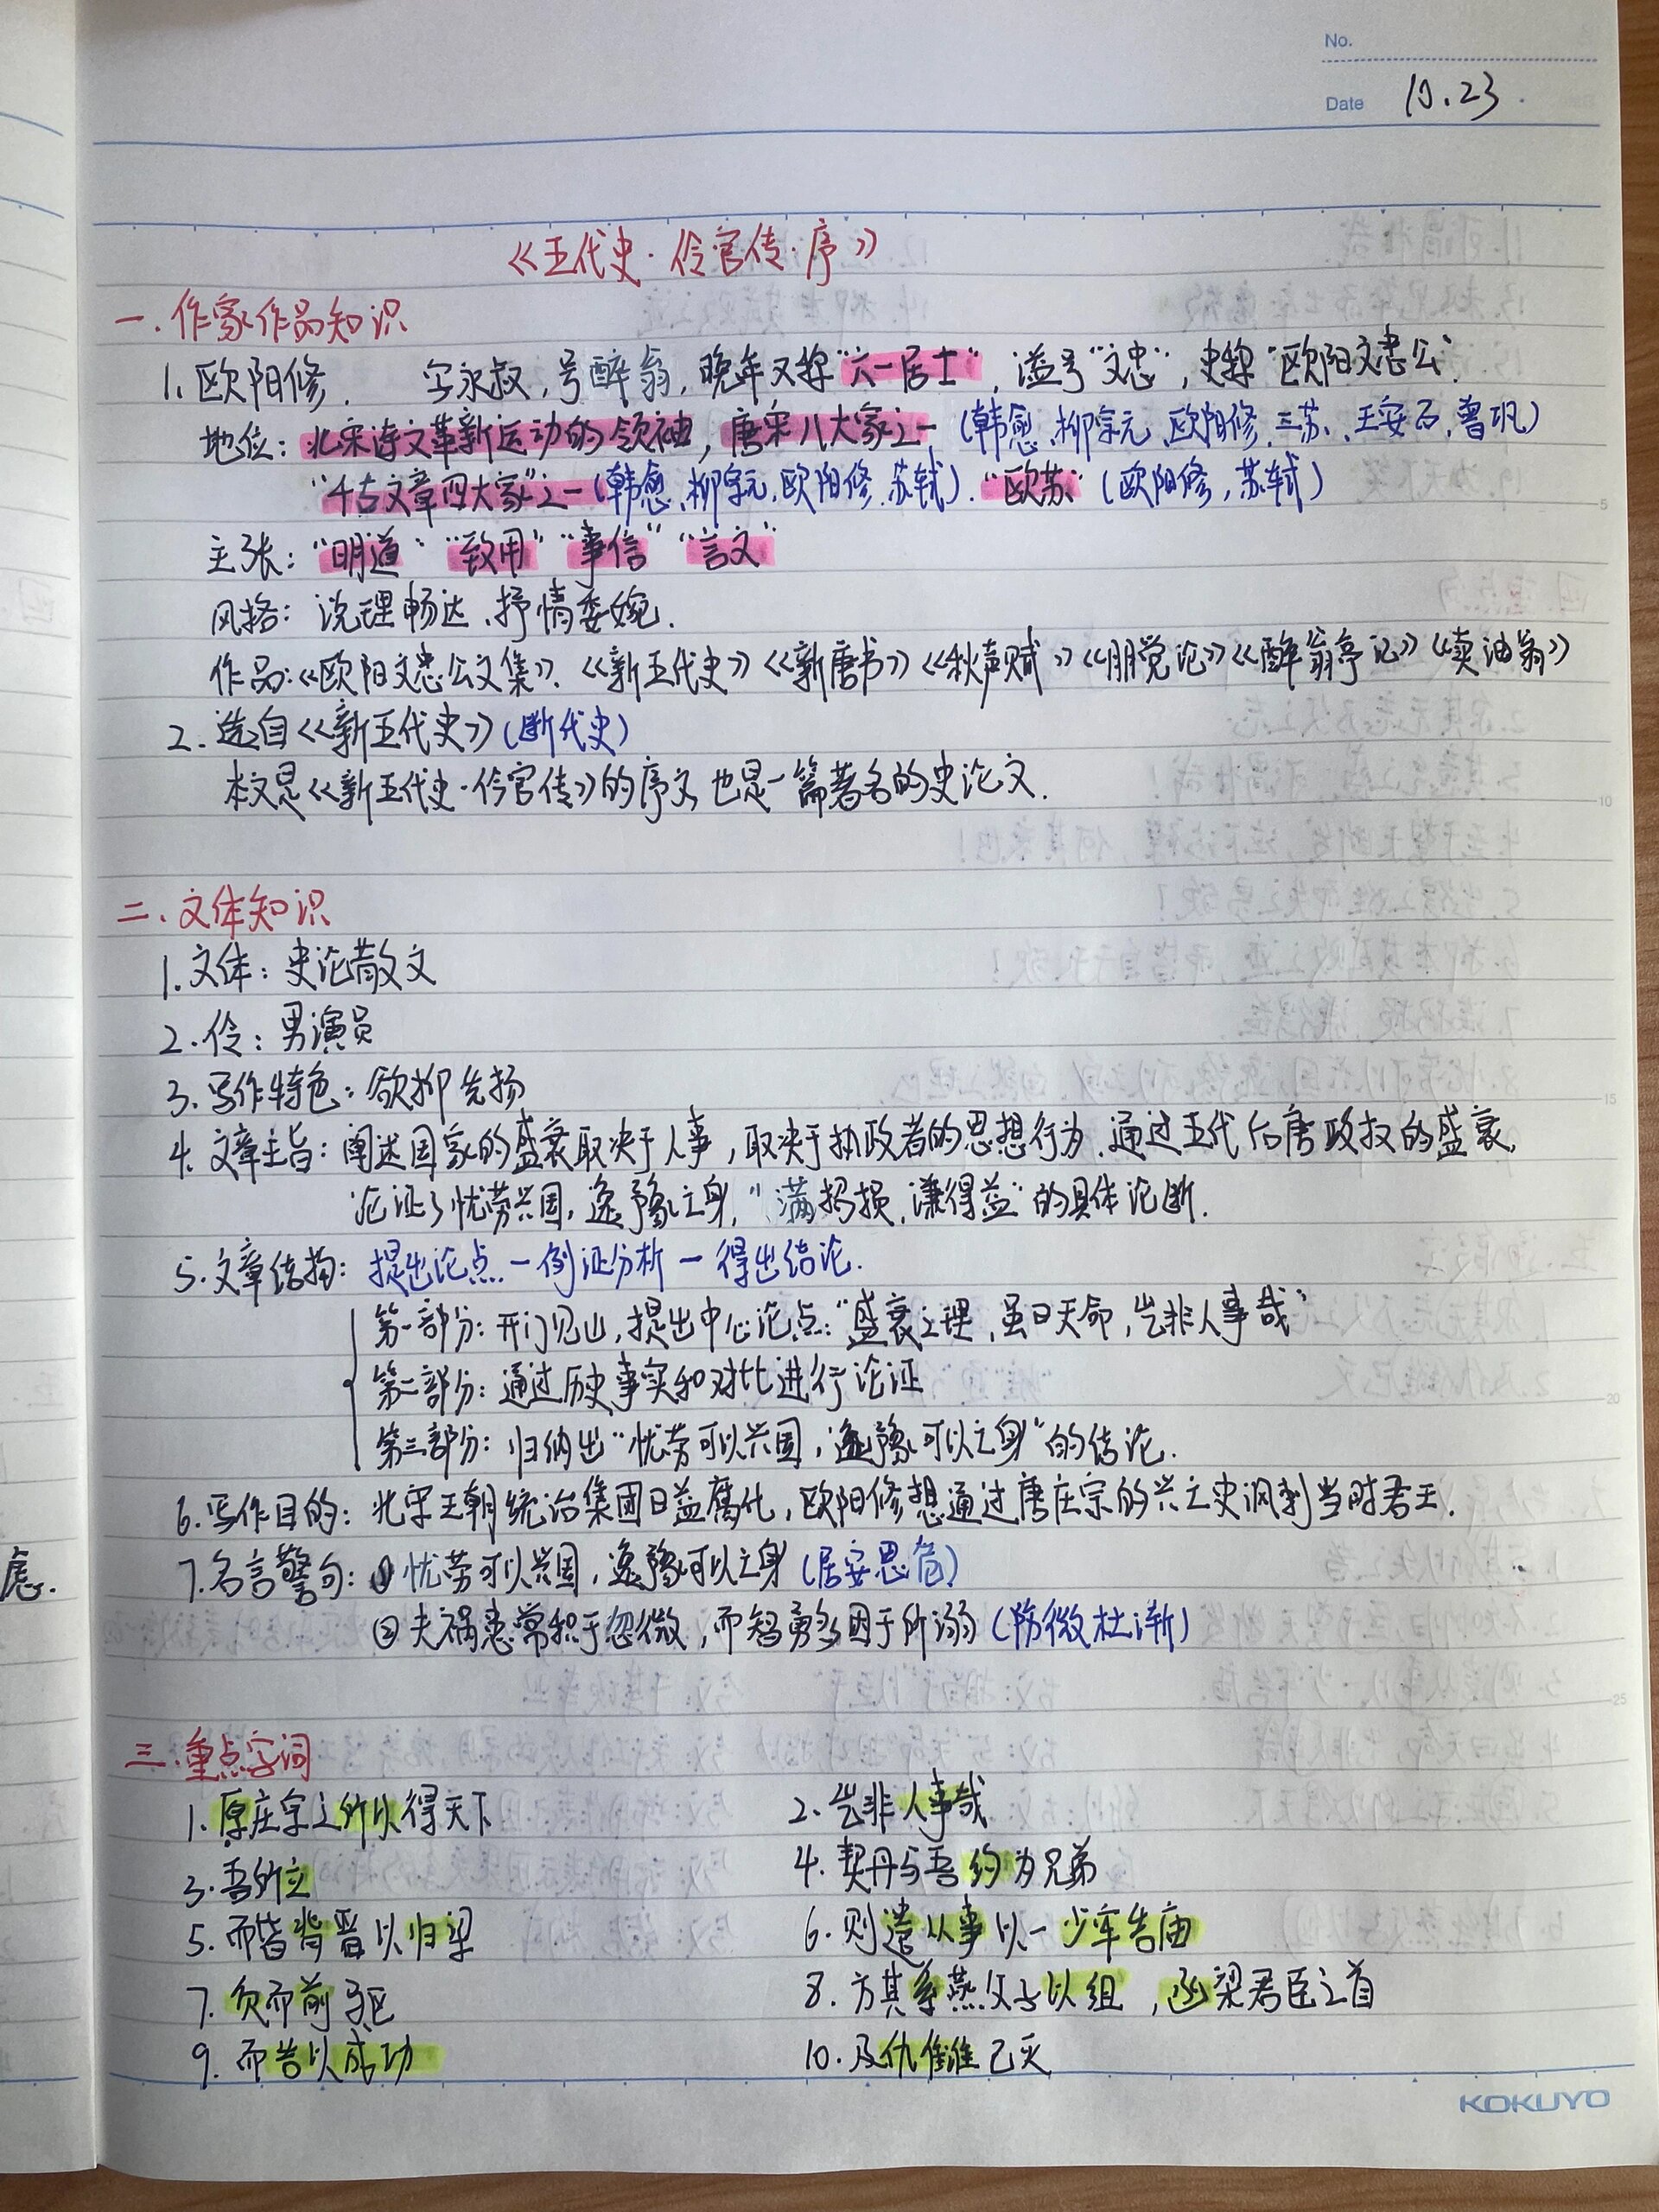 No.
Date 10.23
《五代史·伶官传·序》
一.作家作品知识
1.欧阳修. 字永叔,号醉翁,晚年又称"六一居士",谥号"文忠",史称"欧阳文忠公".
地位:北宋诗文革新运动的领袖,唐宋八大家之一(韩愈、柳宗元、欧阳修、三苏、王安石、曾巩)
"千古文章四大家"之一(韩愈、柳宗元、欧阳修、苏轼)."欧苏"(欧阳修,苏轼)
主张:"明道""致用""事信""言文"
风格:说理畅达、抒情委婉.
作品:《欧阳文忠公文集》、《新五代史》《新唐书》《秋声赋》《朋党论》《醉翁亭记》《卖油翁》
2.选自《新五代史》(断代史)
本文是《新五代史·伶官传》的序文,也是一篇著名的史论文.
二.文体知识
1.文体:史论散文
2.伶:男演员
3.写作特色:欲抑先扬
4.文章主旨:阐述国家的盛衰取决于人事,取决于执政者的思想行为.通过五代后唐政权的盛衰,
论证了忧劳兴国,逸豫亡身,"满招损,谦得益"的具体论断.
5.文章结构:提出论点—例证分析—得出结论.
第一部分:开门见山,提出中心论点:"盛衰之理,虽曰天命,岂非人事哉"
第二部分:通过历史事实和对比进行论证
第三部分:归纳出"忧劳可以兴国,逸豫可以亡身"的结论.
6.写作目的:北宋王朝统治集团日益腐化,欧阳修想通过唐庄宗的兴亡史讽刺当时君王.
7.名言警句:①忧劳可以兴国,逸豫可以亡身(居安思危)
虑.
②夫祸患常积于忽微,而智勇多困于所溺(防微杜渐)
三.重点字词
1.原庄宗之所以得天下 2.岂非人事哉
3.吾所立 4.契丹与吾约为兄弟
5.而皆背晋以归梁 6.则遣从事以一少牢告庙
7.负而前驱 8.方其系燕父子以组,函梁君臣之首
9.而告以成功 10.及仇雠已灭
KOKUYO